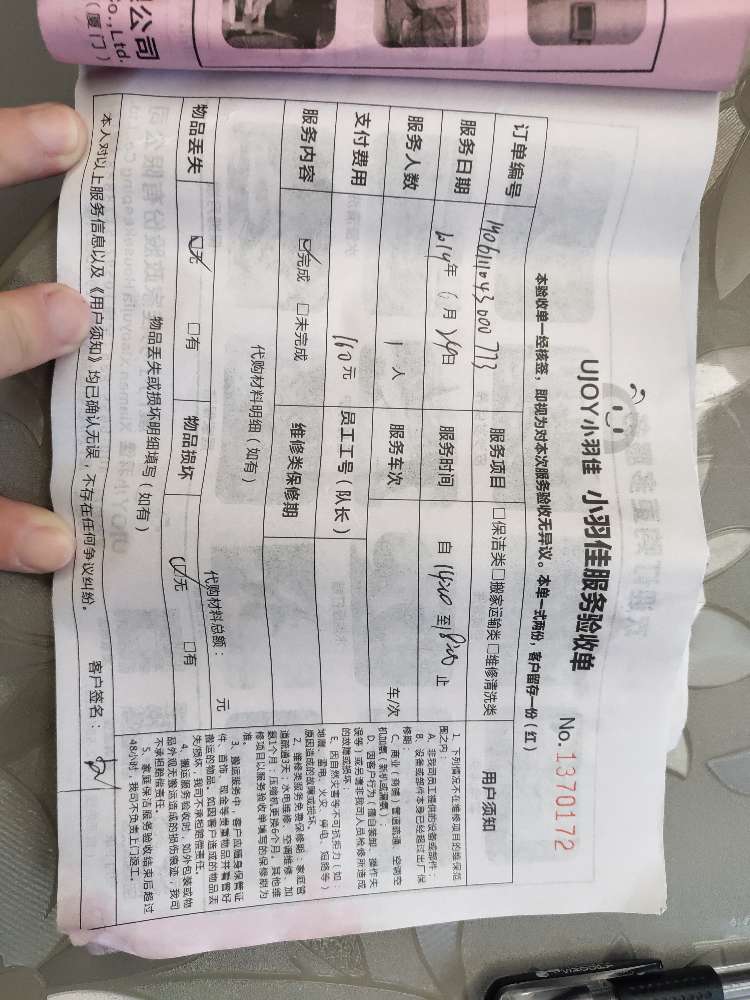 公司
Co.,Ltd.
(厦门)
UJOY小羽佳 小羽佳服务验收单
No.1370172
本验收单一经核签，即视为对本次服务验收无异议。本单一式两份，客户留存一份(红)
订单编号
服务项目 □保洁类□搬家运输类□维修清洗类
服务日期 年 6月29日
服务时间 自 至 止
服务人数 1人
服务车次 车/次
支付费用 160元
员工工号(队长)
服务内容 ☑完成 □未完成
维修类保修期
代购材料明细(如有)
代购材料总额： 元
物品丢失 ☑无 □有
物品损坏 ☑无 □有
物品丢失或损坏明细填写(如有)
本人对以上服务信息以及《用户须知》均已确认无误，不存在任何争议纠纷。 客户签名：
用户须知
1、下列情况不在维修项目的维保范
围之内：
A、非我司员工提供的设备或部件；
B、设备或部件本身已经超过出厂保
修期；
C、商业（商铺）管道疏通、空调空
机加氨（装机或漏氨）；
D、因客户行为（擅自装卸、操作失
误等）或另请非我司人员检修所造成
的故障或损坏；
E、因自然灾害等不可抗拒力（如：
地震、雷雨、火灾、停电、短路等）
原因造成的故障或损坏。
2、维修类服务免费保修期：家庭管
道疏通3天；水电维修、空调维修、加
氨1个月；压缩机更换6个月，其他维
修项目以服务验收单填写的保修期为
准。
3、搬运服务中，客户应随身保管证
件、首饰、现金等贵重物品并看管好
搬运的物品，如因客户造成的物品丢
失/损坏，我司不承担赔偿责任。
4、搬运服务验收时，如外包装或物
品外观无搬运造成的损伤痕迹，我司
不承担赔偿责任。
5、家庭保洁服务验收结束后超过
48小时，我司不负责上门返工。